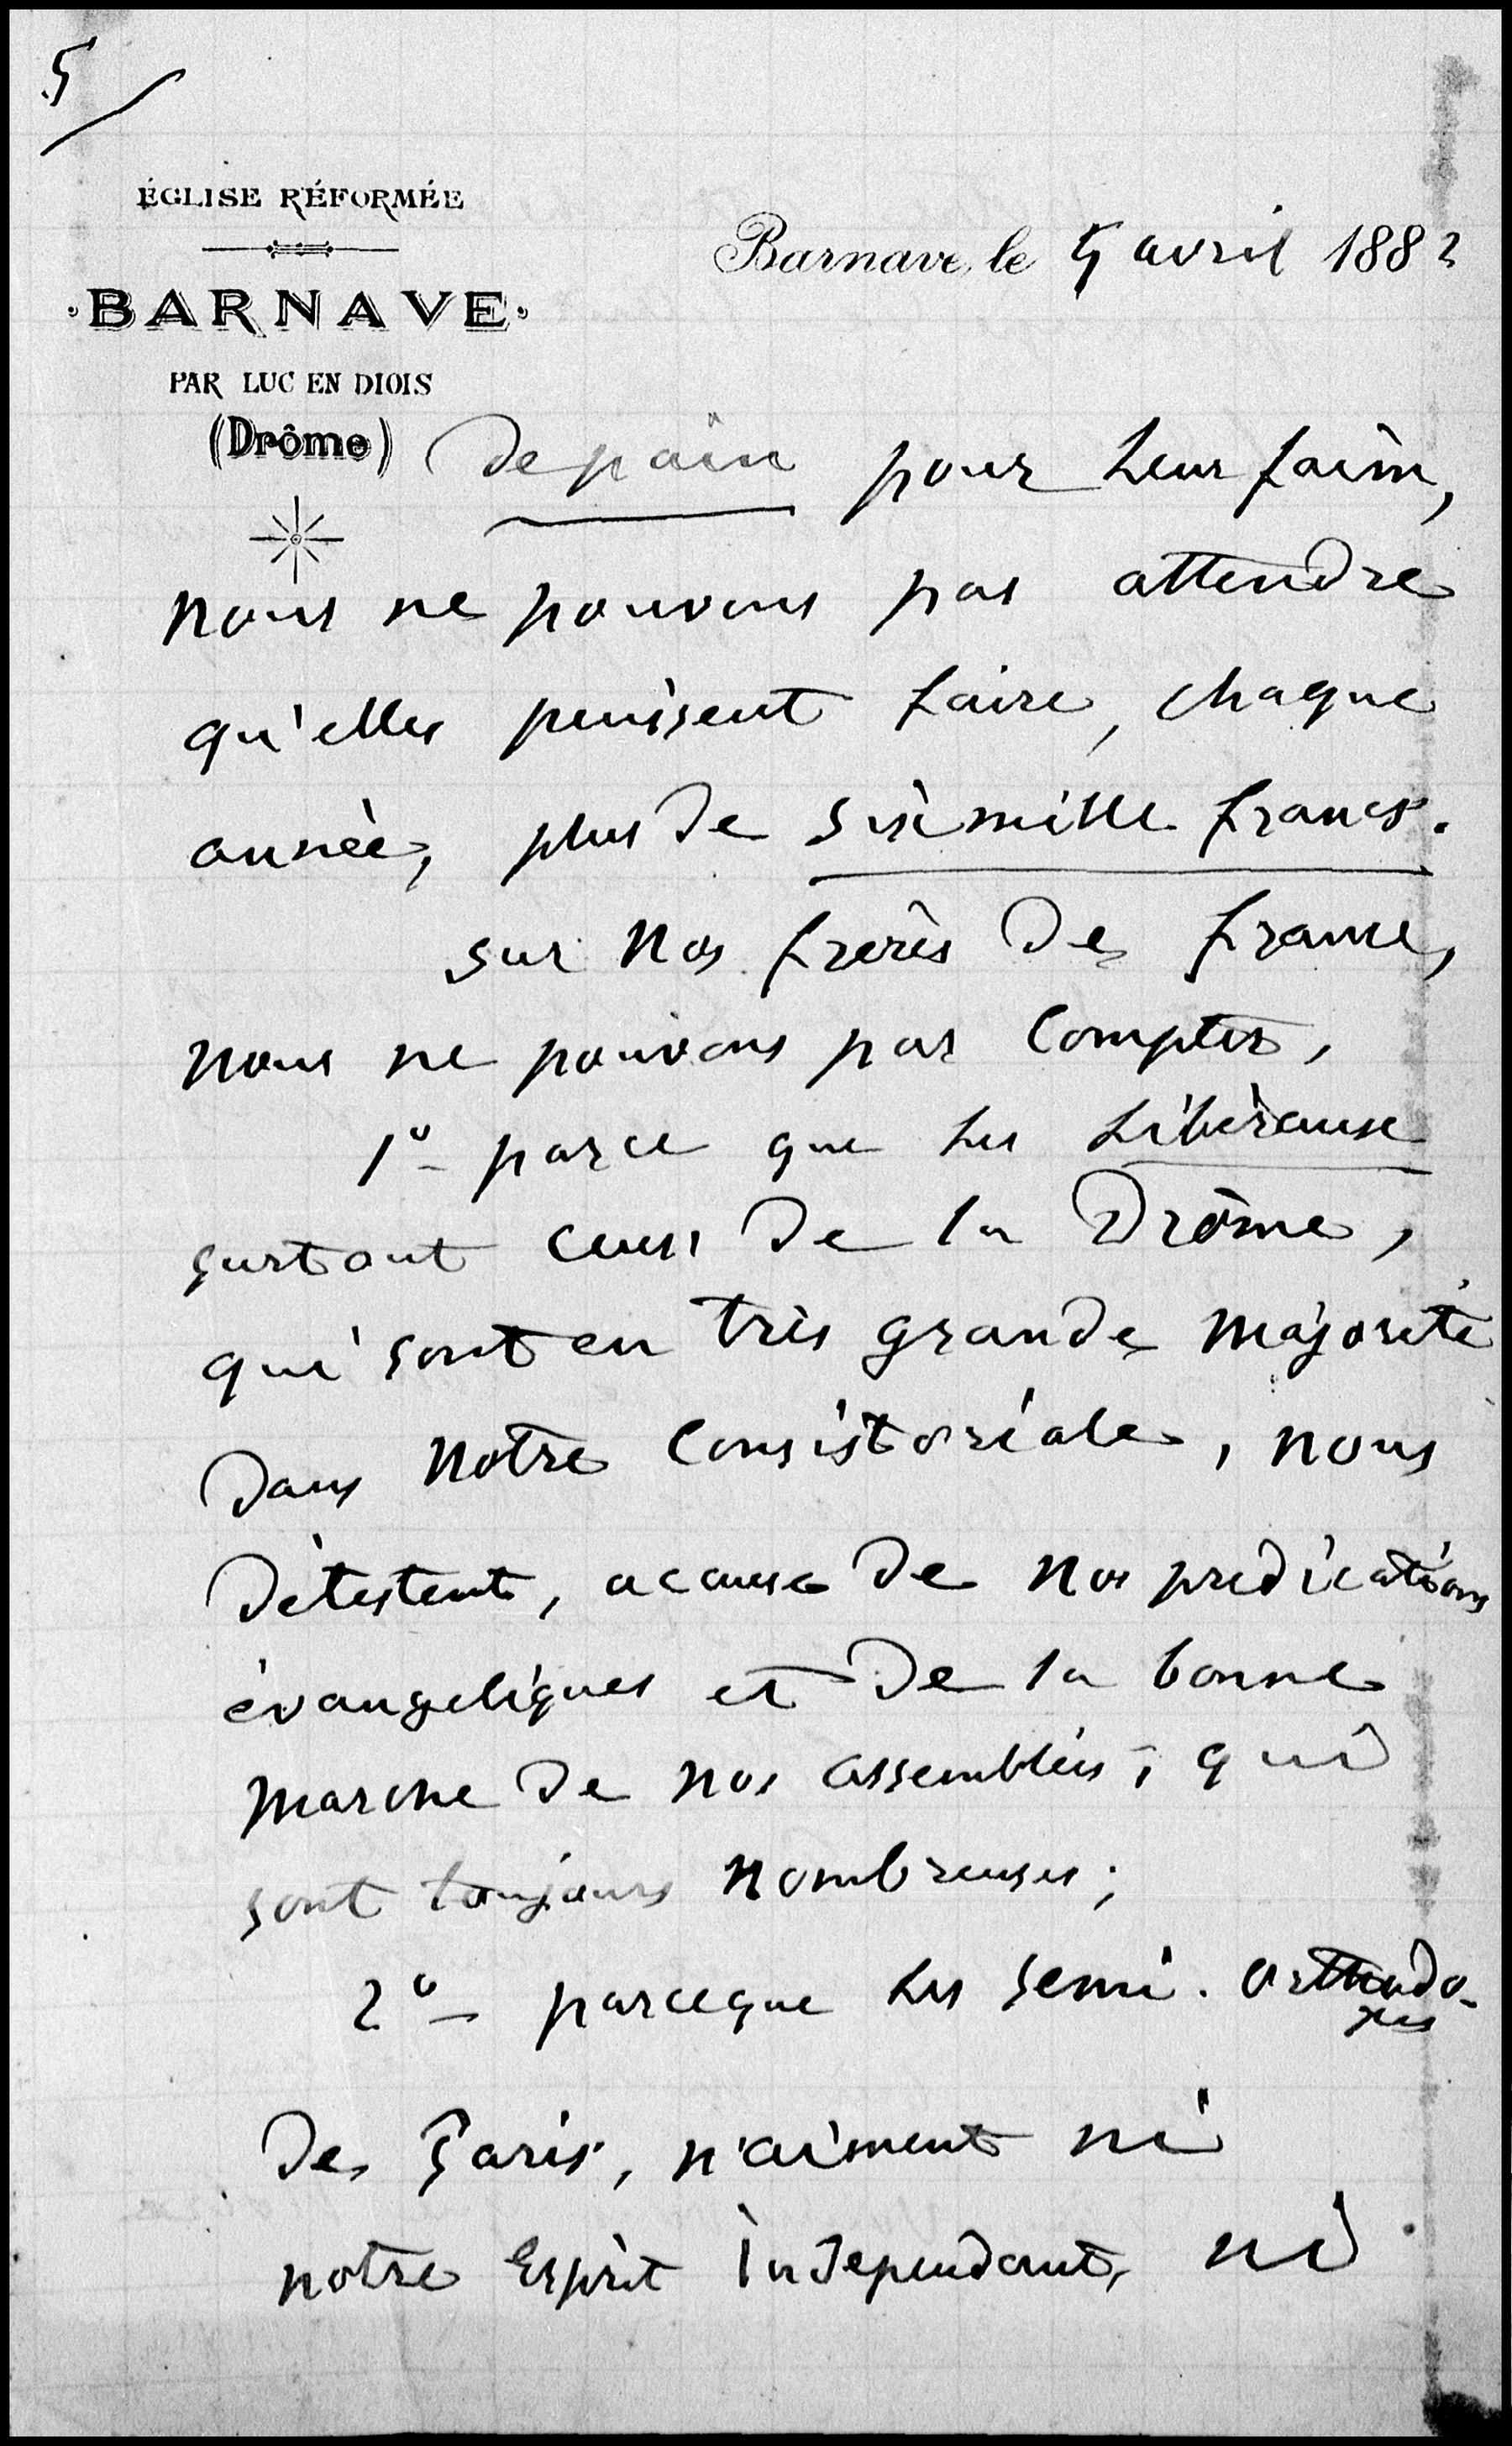 5
ÉGLISE RÉFORMÉE
·BARNAVE·
PAR LUC EN DIOIS
(Drôme)
Barnave, le 5 avril 1882
de pain pour leur faim,
nous ne pouvons pas attendre
qu'elles puissent faire, chaque
année, plus de six mille francs.
sur nos frères de france,
nous ne pouvons pas compter,
1º parce que les Libéraux
surtout ceux de la Drôme,
qui sont en très grande majorité
dans notre Consistoriale, nous
détestent, a cause de nos prédications
évangeliques et de la bonne
marche de nos assemblées, qui
sont toujours nombreuses;
2º parceque les semi-orthodo-
xes
de Paris, n'aiment ni
notre Esprit indépendant, ni